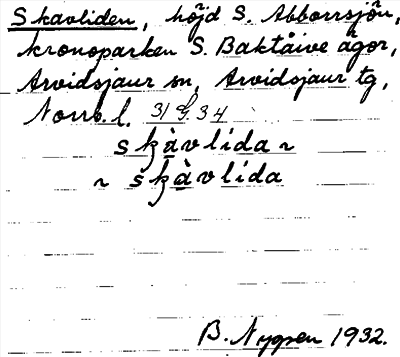 Skavliden, höjd S. Abborrsjön,
kronoparken S. Baktåive ägor,
Arvidsjaur sn, Arvidsjaur tg,
Norrb. l. 31 G. 34
skàvlida ~
~ skàvlida
B. Nygren 1932.